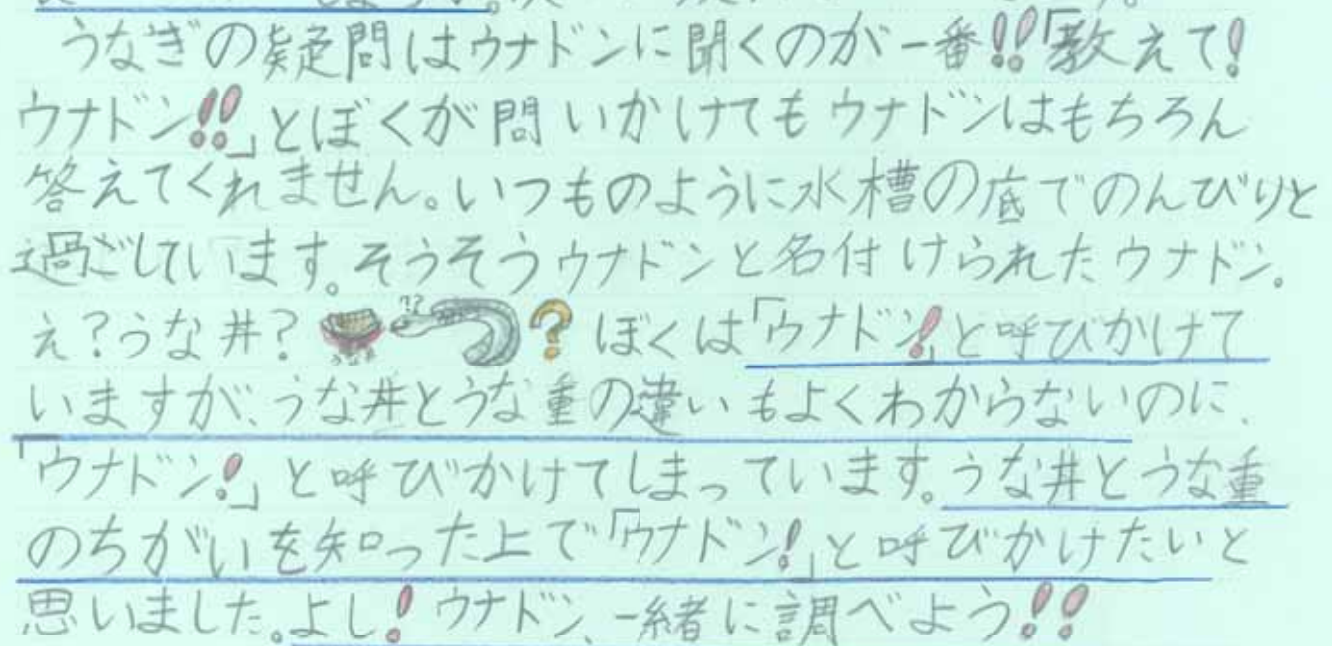 うなぎの疑問はウナドンに聞くのが一番!!「教えて!
ウナドン!!」とぼくが問いかけてもウナドンはもちろん
答えてくれません。いつものように水槽の底でのんびりと
過ごしています。そうそうウナドンと名付けられたウナドン。
え?うな丼? ?? ? ぼくは「ウナドン!」と呼びかけて
いますが、うな丼とうな重の違いもよくわからないのに、
「ウナドン!」と呼びかけてしまっています。うな丼とうな重
のちがいを知った上で「ウナドン!」と呼びかけたいと
思いました。よし!ウナドン、一緒に調べよう!!